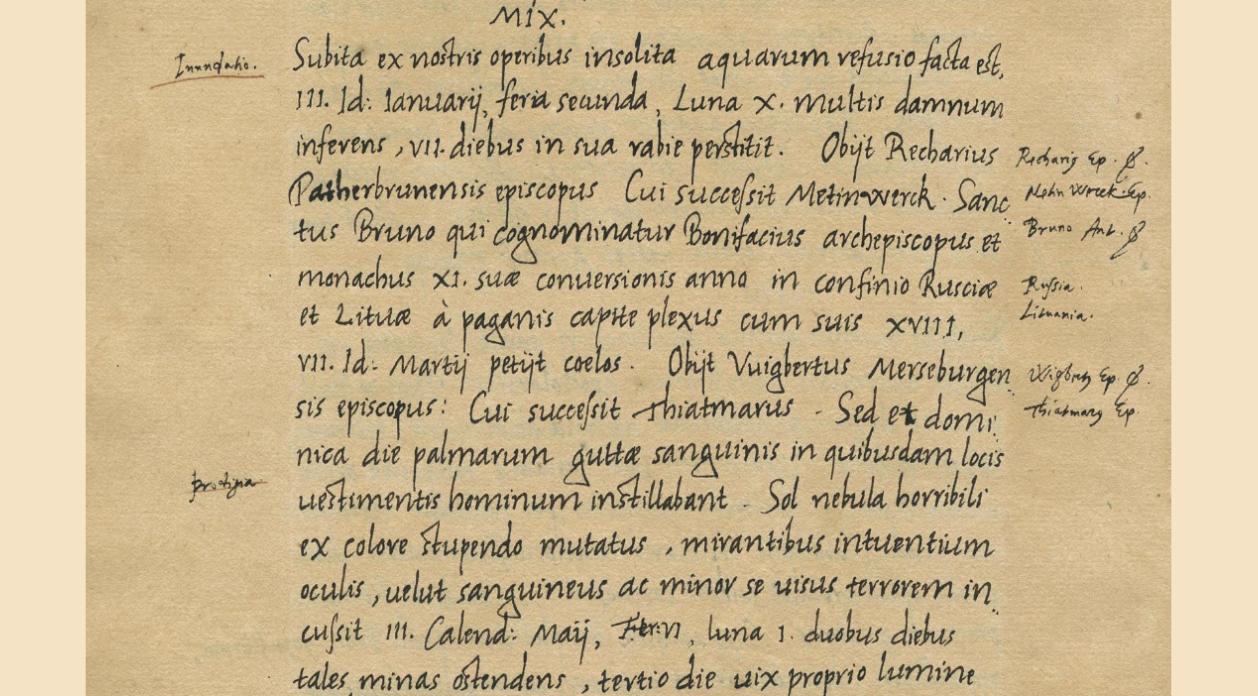 MIX.
Inundatio.
Subita ex nostris operibus insolita aquarum refusio facta est,
III. Id: Ianuarij, feria secunda, Luna X. multis damnum
inferens, VII. diebus in sua rabie perstitit. Obijt Recharius
Patherbrunensis episcopus Cui successit Metinwerck. Sanc
tus Bruno qui cognominatur Bonifacius archepiscopus et
monachus XI. suæ conversionis anno in confinio Rusciæ
et Lituæ à paganis capite plexus cum suis XVIII,
VII. Id: Martij petijt coelos. Obijt Vuigbertus Merseburgen
sis episcopus: Cui successit Thiatmarus. Sed et domi
nica die palmarum guttæ sanguinis in quibusdam locis
uestimentis hominum instillabant. Sol nebula horribili
ex colore stupendo mutatus, mirantibus intuentium
oculis, uelut sanguineus ac minor se uisus terrorem in
cussit III. Calend: Maij, luna I. duobus diebus
tales minas ostendens, tertio die uix proprio lumine
Ep.
Ep.
Bruno
Russia.
Lituania.
Ep.
Ep.
prodigia